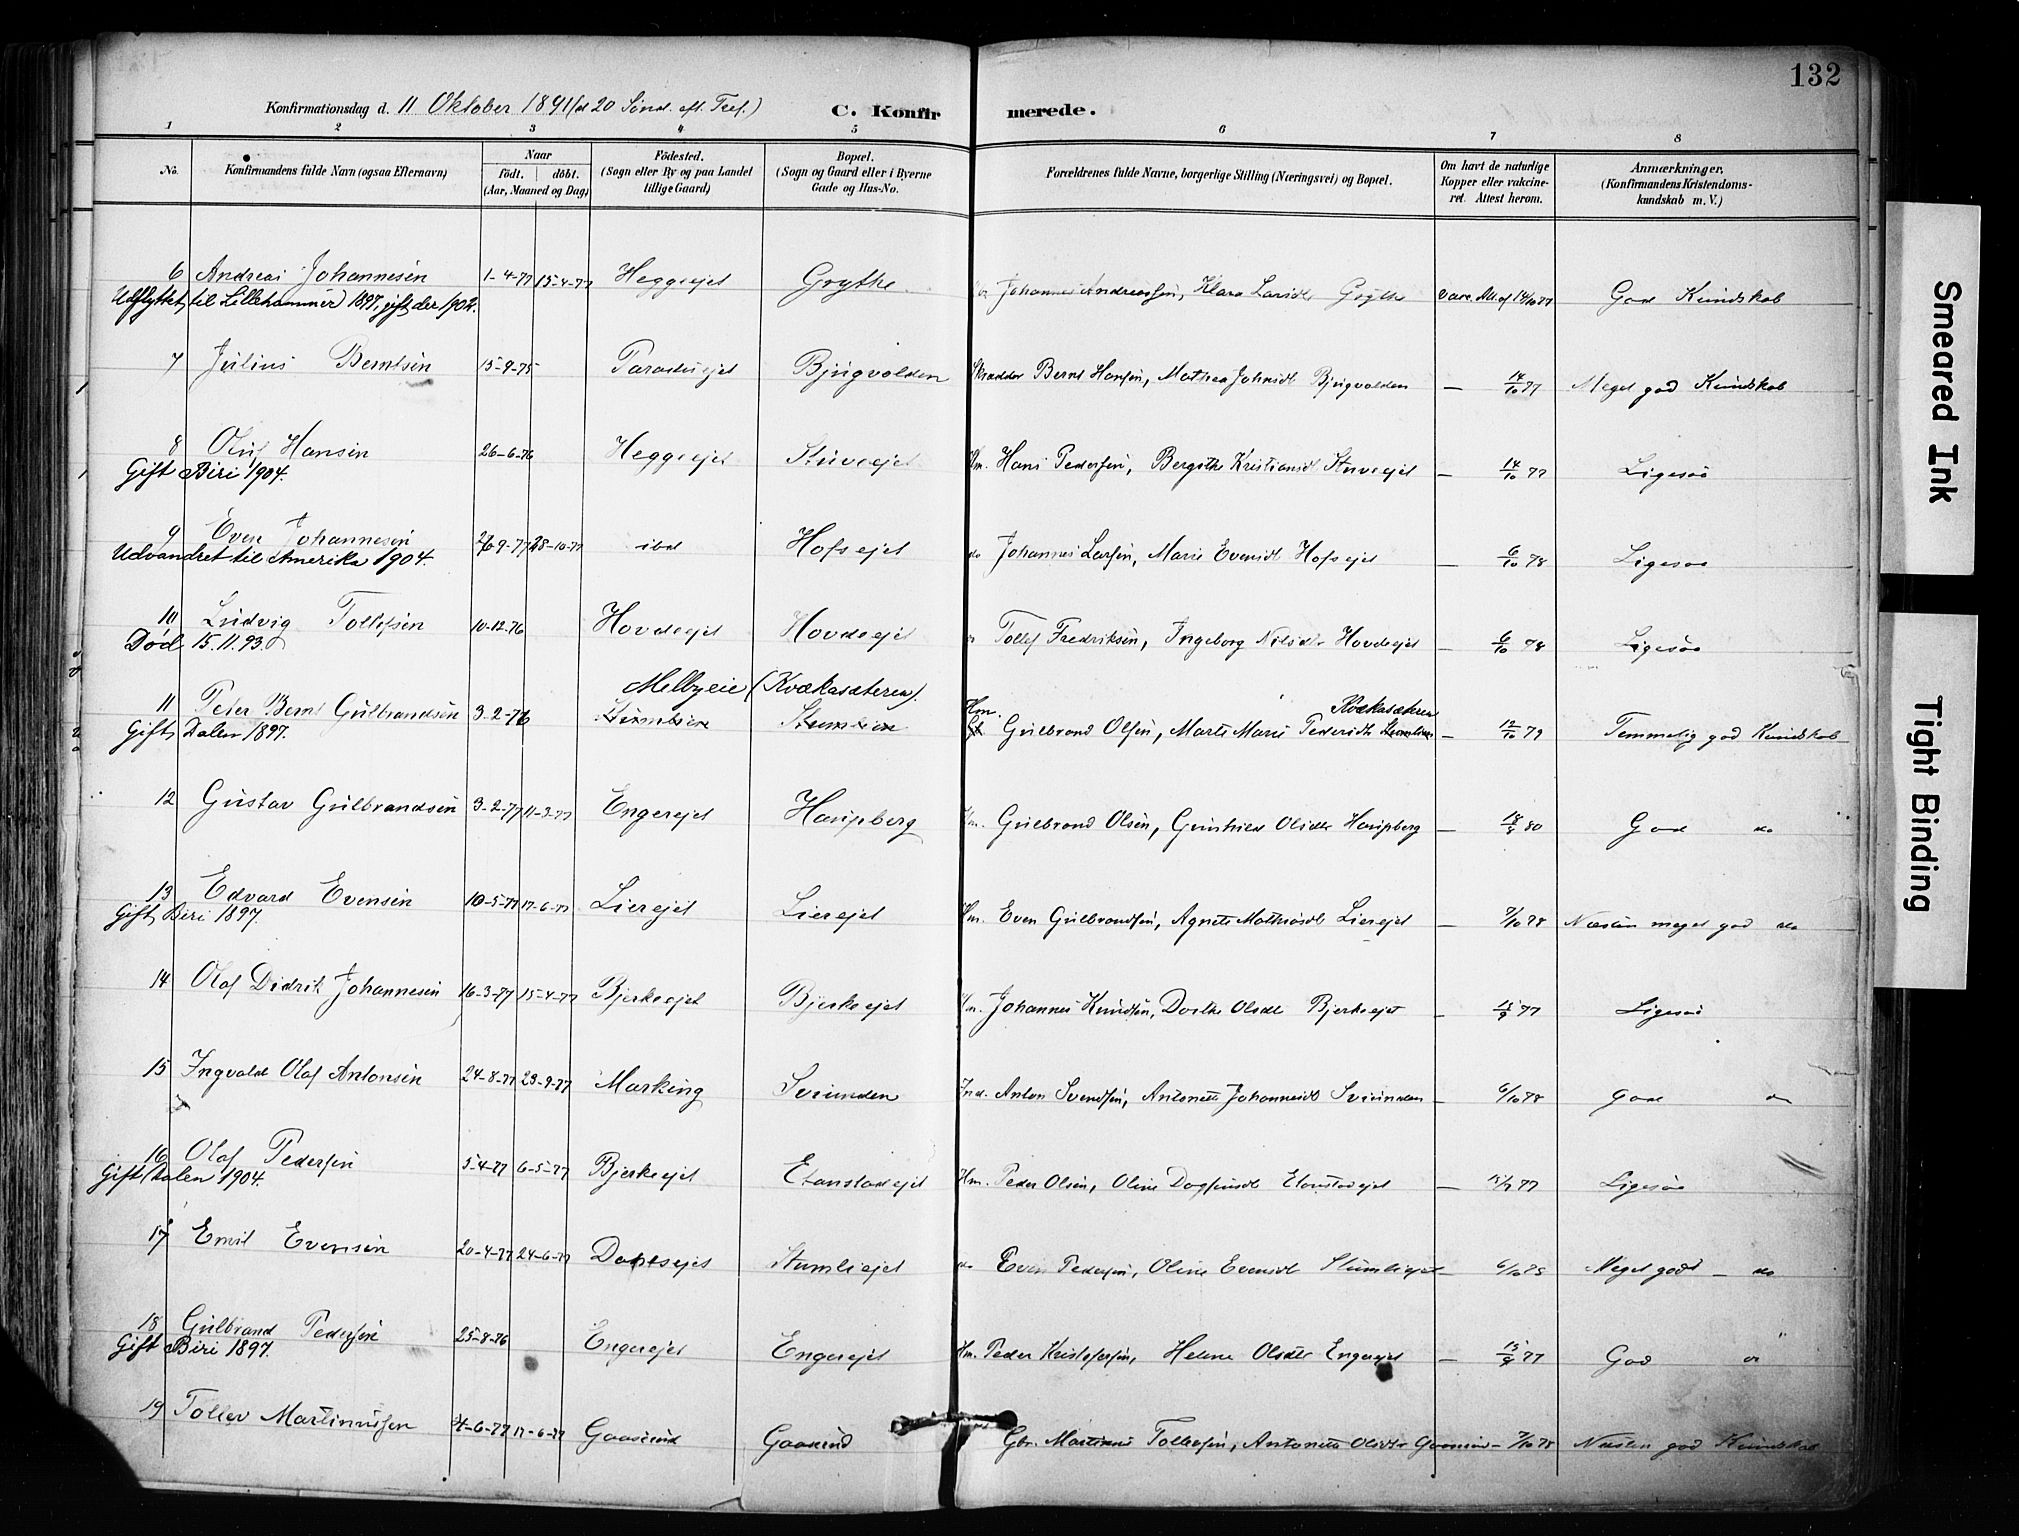 132
Konfirmationsdag d. 11 Oktober 1891 (d 20 Sønd. eft. Tref.) C. Konfirmerede.
1 2 3 4 5 6 7 8
No. Konfirmandens fulde Navn (ogsaa Efternavn) Naar født. døbt. (Aar, Maaned og Dag) Fødested. (Sogn eller By og paa Landet tillige Gaard) Bopæl. (Sogn og Gaard eller i Byerne Gade og Hus-No. Forældrenes fulde Navne, borgerlige Stilling (Næringsvei) og Bopæl. Om havt de naturlige Kopper eller vakcineret. Attest herom. Anmærkninger. (Konfirmandens Kristendomskundskab m. V.)
6 Andreas Johannesen 1-4-77 15-4-77 Heggeejet Grythe Johannes Andreassen, Klara Larsdt Grythe Vacc. Att. af 14/10 77 God Kundskab
Udflyttet til Lillehammer 1897, gift der 1902.
7 Julius Berntsen 15-9-75 Bjugvolden Skrædder Bernt Hansen, Mathea Johnsdt Bjugvolden — 14/10 77 Meget god Kundskab
8 Oluf Hansen 26-6-76 Heggeejet Stuveejet Hm. Hans Pedersen, Bergithe Kristiansdt Stuveejet — 14/10 77 Ligesaa
Gift Biri 1904.
9 Even Johannesen 28-10-77 ibd Hofsejet do Johannes Larsen, Marie Evensdt Hofsejet 6/10 78 Ligesaa
Udvandret til Amerika 1904.
10 Ludvig Tollefsen 10-12-76 Hovdeejet Hovdeejet Tollef Fredriksen, Ingeborg Nilsdtr Hovdeejet 6/10 78 Ligesaa
Død 15.11.93.
Melbyeie (Kvækasæteren). Hm. Kvækasæteren
11 Peter Bernt Gulbrandsen 3-2-76 Stumlien Stumlien Gulbrand Olsen, Marte Marie Pedersdtr Stumlien — 12/10 79 Temmelig god Kundskab
Gift Dalen 1897.
12 Gustav Gulbrandsen 3-2-77 11-3-77 Engerejet Haugsberg Hm. Gulbrand Olsen, Gunhild Olsdtr Haugsberg — 80 God do
13 Edvard Evensen 10-5-77 17-6-77 Lierejet Lierejet Hm. Even Gulbrandsen, Agnete Mathiasdt Lierejet — 7/10 78 Næsten meget god do
Gift Biri 1897.
14 Olaf Didrik Johannesen 16-3-77 15-4-77 Bjerkeejet Bjerkeejet Hm. Johannes Knudsen, Dorthe Olsdt Bjerkeejet — 15/9 77 Ligesaa
15 Ingvald Olaf Antonsen 24-8-77 23-9-77 Marking Sviunden Ind. Anton Svendsen, Antonette Johannesdt Sviunden — 6/10 78 God do
16 Olaf Pedersen 5-4-77 6-5-77 Bjerkeejet Etanstadejet Hm. Peder Olsen, Oline Dagfinsdt Etanstadejet — 15/9 77 Ligesaa
Gift Dalen 1904.
17 Emil Evensen 20-4-77 24-6-77 Stumliejet do Even Pedersen, Oline Evensdt Stumliejet — Meget godt — do
18 Gulbrand Pedersen 25-8-76 Engerejet Engerejet Hm. Peder Kristofersen, Helene Olsdtr Engerejet — 15/9 77 God do
Gift Biri 1897.
19 Tollev Martinussen 4-6-77 17-6-77 Gaaserud Gaaserud Gbr. Martinus Tollefsen, Antonette Olsdtr Gaaserud — 7/10 78 Næsten god Kundskab
Smeared Ink
Tight Binding